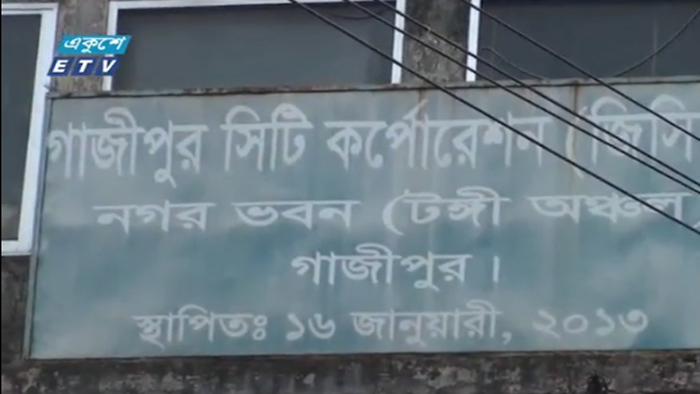 একুশে
ETV
গাজীপুর সিটি কর্পোরেশন (জিসি
নগর ভবন (টঙ্গী অঞ্চল)
গাজীপুর।
স্থাপিতঃ ১৬ জানুয়ারী, ২০১৩